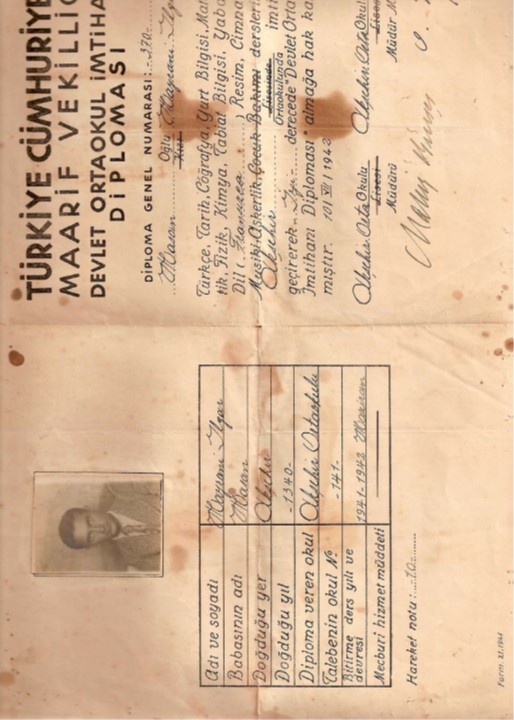 TÜRKİYE CÜMHURİYE
MAARİF VEKİLLİĞ
DEVLET ORTAOKUL İMTİHA
DİPLOMASI
DİPLOMA GENEL NUMARASI: 370
Hasan Oğlu Kızı
Türkçe, Tarih, Coğrafya, Yurt Bilgisi, Mat
tik, Fizik, Kimya, Tabiat Bilgisi, Yaba
Dil (Fransızca) Resim, Cimna
Musiki, Askerlik, Çocuk Bakımı dersleri
Akşehir Ortaokulunda Lisesinde imti
geçirerek derecede "Devlet Orta
İmtihanı Diploması" almağa hak ka
mıştır. 101 VII 1942
Akşehir Orta Okulu Lisesi
Müdürü
Akşehir Orta Okulu
Lisesi
Müdür M
Adı ve soyadı
Babasının adı Hasan
Doğduğu yer Akşehir
Doğduğu yıl -1340-
Diploma veren okul Akşehir Ortaokulu
Talebenin okul № -141-
Bitirme ders yılı ve devresi 1941-1942 Haziran
Mecburi hizmet müddeti
Hareket notu: 10